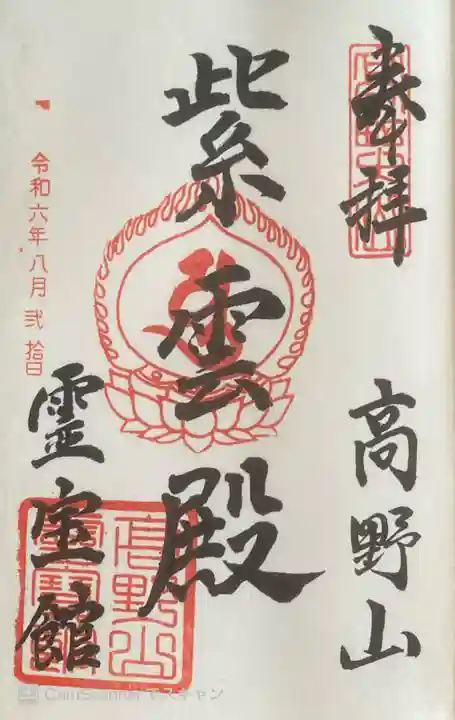 奉拝
高野山
紫雲殿
令和六年八月弐拾日
霊宝館
高野山
霊寳館
CamScanner でスキャン